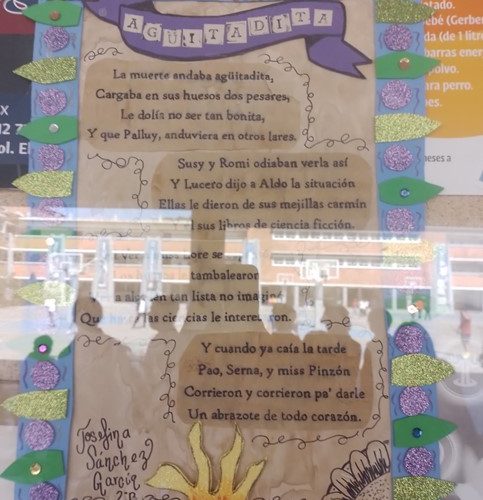 AGÜITADITA
La muerte andaba agüitadita,
Cargaba en sus huesos dos pesares,
Le dolís no ser tan bonita,
Y que Palluy, anduviera en otros lares.
Susy y Romi odiaban verla así
Y Lucero dijo a Aldo la situación
Ellas le dieron de sus mejillas carmín
sus libros de ciencia ficción.
se
tambalearon
tan lista no
las ciencias le
Y cuando ya caía la tarde
Pao, Serna, y miss Pinzón
Corrieron y corrieron pa' darle
Un abrazote de todo corazón.
Josefina
Sánchez
García
2°B
ebé (Gerber
da (de 1 litro
barras ener
polvo.
ara perro.
meses a